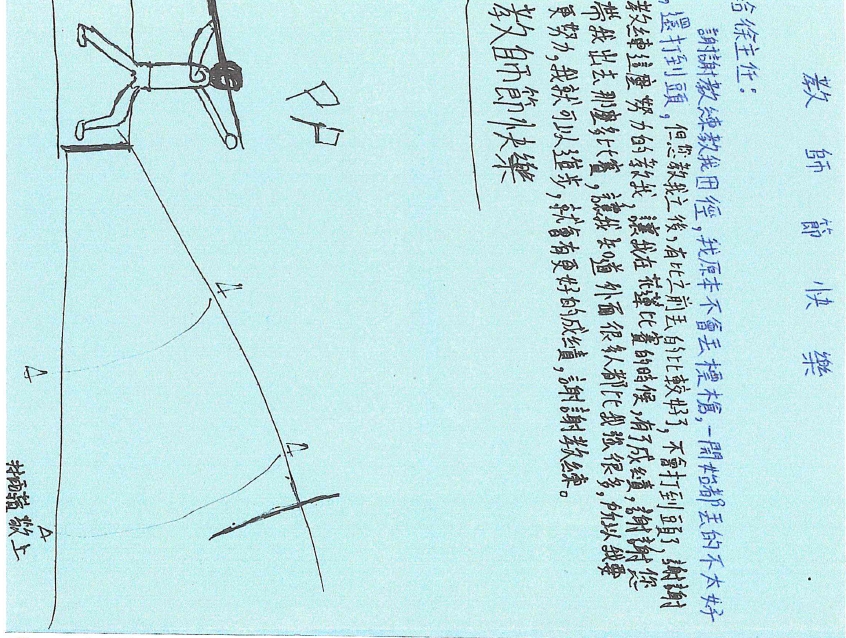 教師節快樂
給徐主任：
謝謝教練教我田徑，我原本不會丟標槍，一開始都丟的不太好
，還打到頭，但您教我之後，有比之前丟的比較好了，不會打到頭了，謝謝
教練這麼努力的教我，讓我在花蓮比賽的時候，有了成績，謝謝您
帶我出去那麼多比賽，讓我知道外面很多人都比我強很多，所以我要
更努力，我就可以進步，就會有更好的成績，謝謝教練。
教師節快樂
敬上